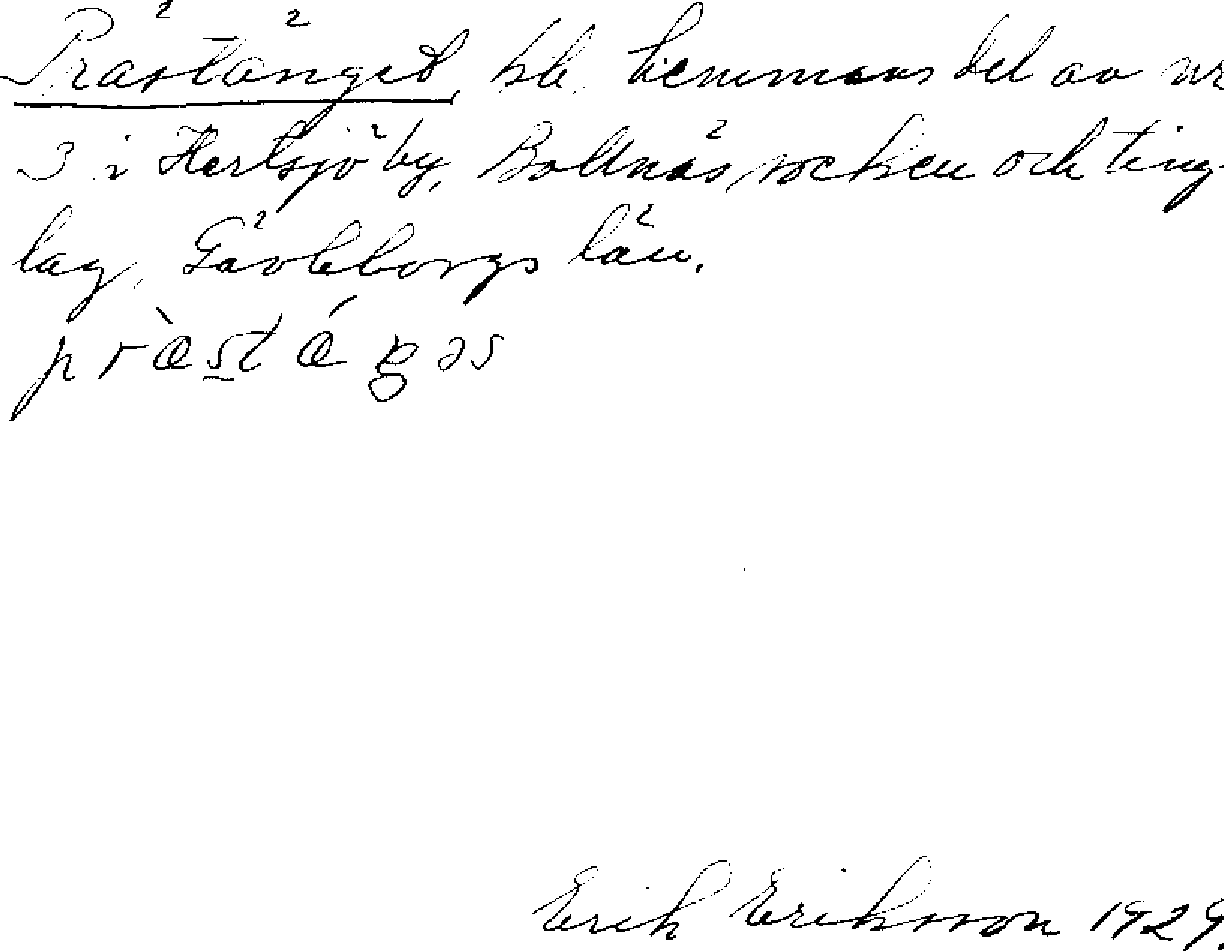 Prästänget, hb. hemmansdel av nr
3 i Hertsjö by, Bollnäs socken och ting-
lag, Gävleborgs län.
Erik Eriksson 1929.